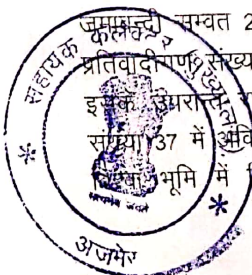 जमाबन्दी सम्वत 2
प्रतिवादीगण संख्य
इसके उपरान्त
संख्या 37 में अवि
भूमि में
सहायक कलेक्टर
अजमेर